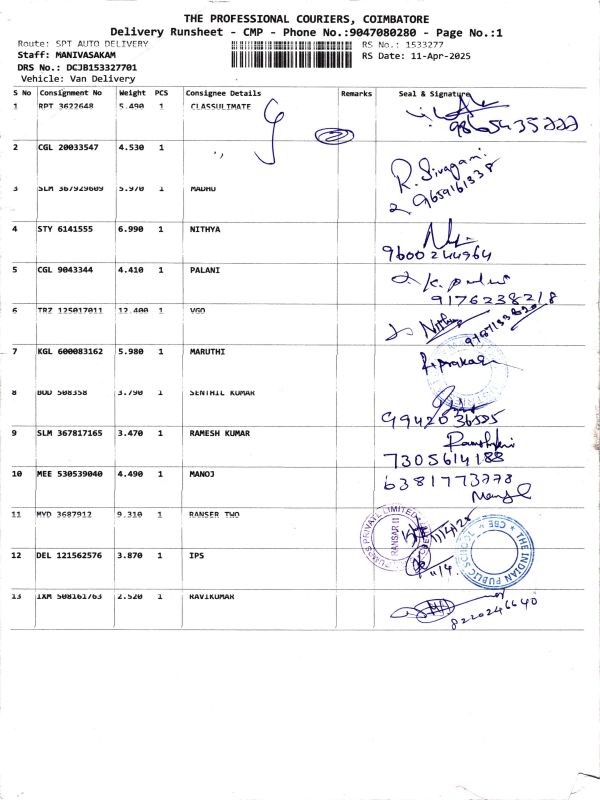 THE PROFESSIONAL COURIERS, COIMBATORE
Delivery Runsheet - CMP - Phone No.:9047080280 - Page No.:1
Route: SPT AUTO DELIVERY RS No.: 1533277
Staff: MANIVASAKAM RS Date: 11-Apr-2025
DRS No.: DCJB153327701
Vehicle: Van Delivery
S No Consignment No Weight PCS Consignee Details Remarks Seal & Signature
1 RPT 3622648 5.490 1 CLASSULTMATE
2 CGL 20033547 4.530 1
R. Sivagami
9659161338
3 SLM 367929609 5.970 1 MADHU
4 STY 6141555 6.990 1 NITHYA
9600244964
5 CGL 9043344 4.410 1 PALANI
9176238218
6 TRZ 125017011 12.400 1 VGO
7 KGL 600083162 5.980 1 MARUTHI
8 BOD 508358 3.790 1 SENTHIL KUMAR
9942036555
9 SLM 367817165 3.470 1 RAMESH KUMAR
7305614188
10 MEE 530539040 4.490 1 MANOJ
6381773778
11 MYD 3687912 9.310 1 RANSER TWO
PRIVATE LIMITED
RANSAR II
11/4/25
12 DEL 121562576 3.870 1 IPS
11/4.
THE INDIAN PUBLIC SCHOOL
CBE
13 IXM 508161763 2.520 1 RAVIKUMAR
8220246640